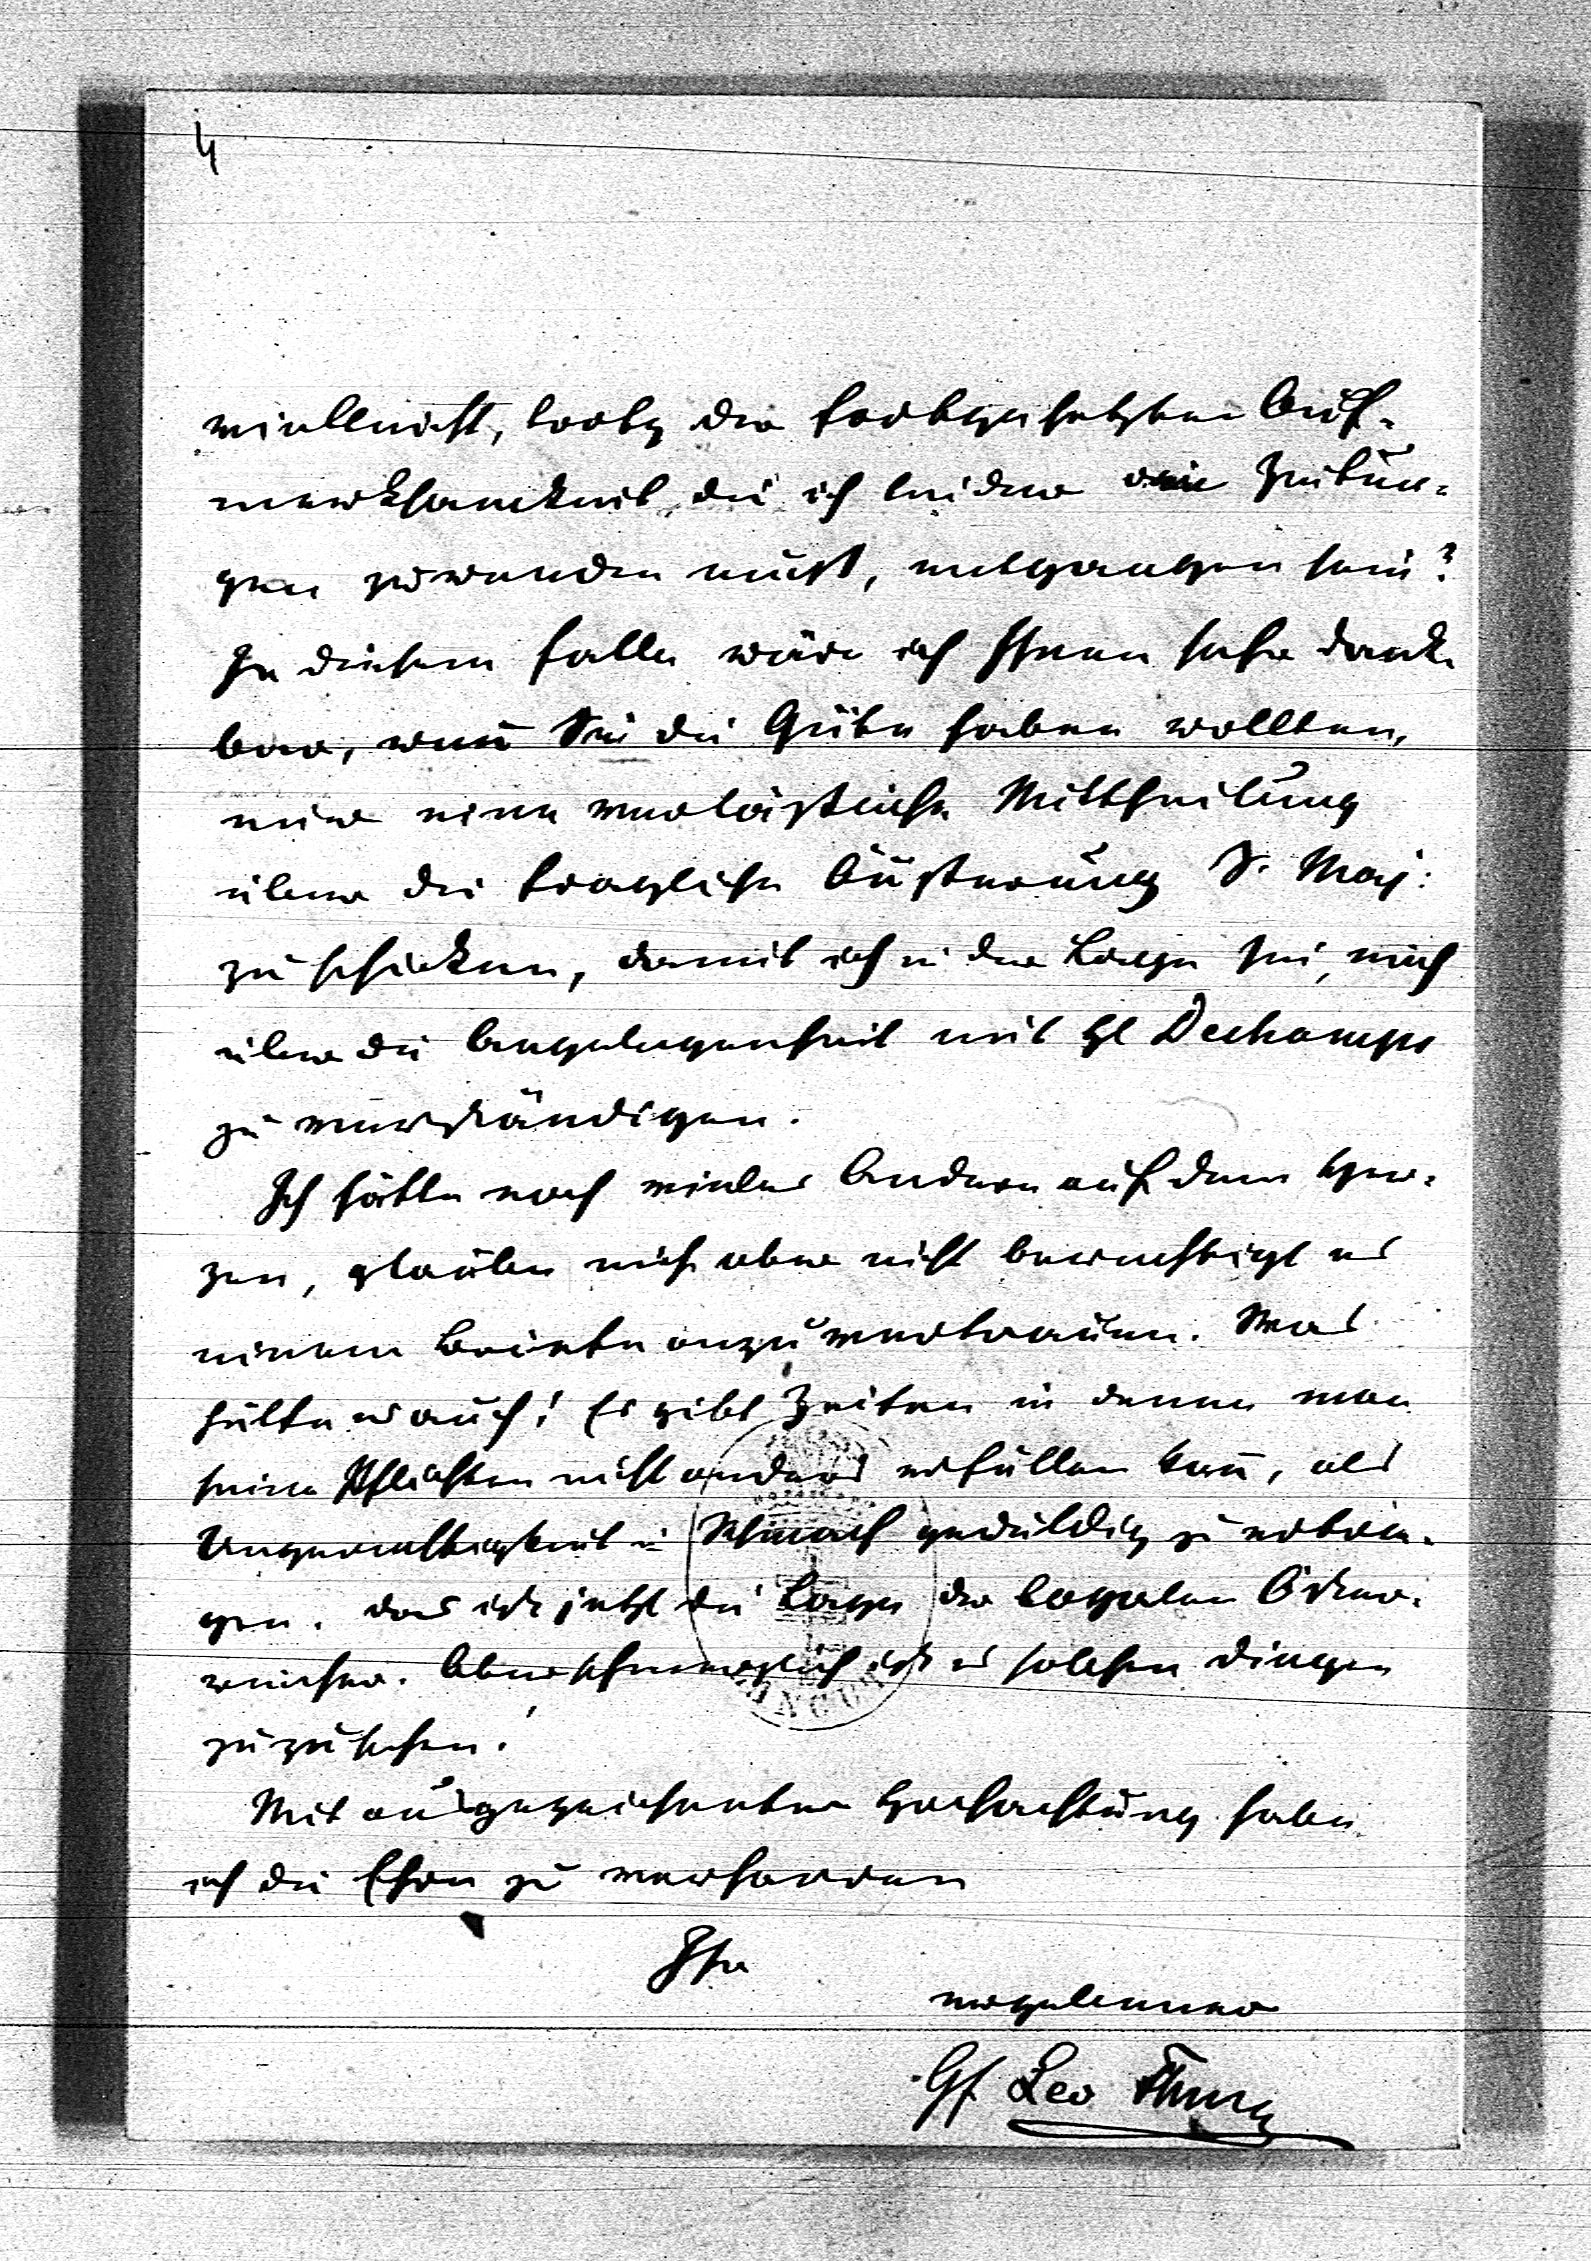 4
vielleicht, trotz der fortgesetzten Auf-
merksamkeit, die ich leider den Zeitun-
gen zuwenden muß, entgangen sein?
In diesem Falle wäre ich Ihnen sehr dank-
bar, weñ Sie die Güte haben wollten,
mir eine verläßliche Mittheilung
über die fragliche Äußerung S. Maj:
zu schicken, damit ich in der Lage sei, mich
über die Angelegenheit mit H Dechamps
zu verständigen.
Ich hätte noch vieles Andere auf dem Her-
zen, glaube mich aber nicht berechtigt es
einem Briefe anzuvertrauen. Was
hälfe es auch! Es gibt Zeiten in denen man
seine Pflichten nicht anders erfüllen kañ, als
Ungerechtigkeit u Schmach geduldig zu ertra-
gen. Das ist jetzt die Lage der loyalen Öster-
reicher. Aber schmerzlich ist es solchen Dingen
zuzusehen.
Mit ausgezeichneter Hochachtung habe
ich die Ehre zu verharren
Ihr
ergebener
Gf Leo Thun